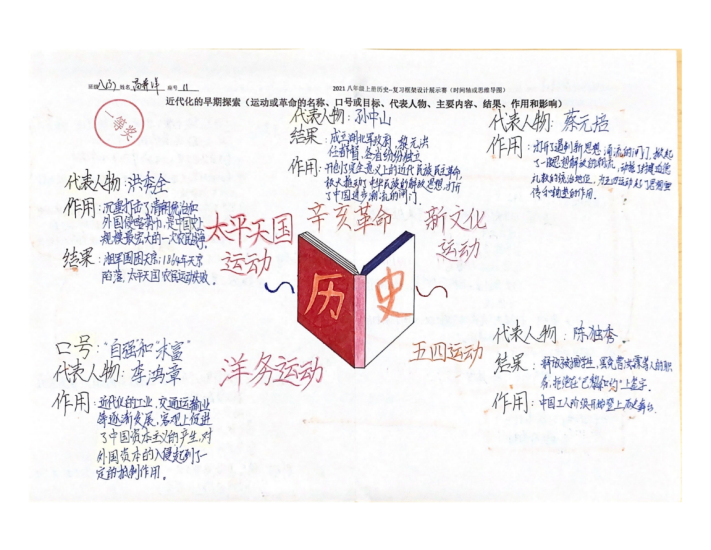 班级 八(3) 姓名 座号 11
2021 八年级上册历史--复习框架设计展示赛（时间轴或思维导图）
近代化的早期探索（运动或革命的名称、口号或目标、代表人物、主要内容、结果、作用和影响）
一等奖
代表人物：孙中山
结果：成立湖北军政府，黎元洪
任都督，各省纷纷独立
作用：开创了完全意义上的近代民族民主革命，
极大推动了中华民族的解放思想，打开
了中国进步潮流的闸门。
代表人物：蔡元培
作用：打开了遏制新思想涌流的闸门，掀起
了一股思想解放的潮流，动摇了封建道德
礼教的统治地位，为五四运动起了思想宣
传和铺垫的作用。
代表人物：洪秀全
作用：沉重打击了清朝统治和
外国侵略势力，是中国史上
规模最宏大的一次农民战争。
结果：湘军围困天京；1864年天京
陷落，太平天国农民运动失败。
太平天国
运动
辛亥革命
新文化
运动
历史
口号："自强和"求富"
代表人物：李鸿章
作用：近代化的工业，交通运输业
等逐渐发展，客观上促进
了中国资本主义的产生，对
外国资本的入侵起到了一
定的抵制作用。
洋务运动
五四运动
代表人物：陈独秀
结果：释放被捕学生，罢免曹汝霖等人的职
务，拒绝在"巴黎和约"上签字。
作用：中国工人阶级开始登上历史舞台。